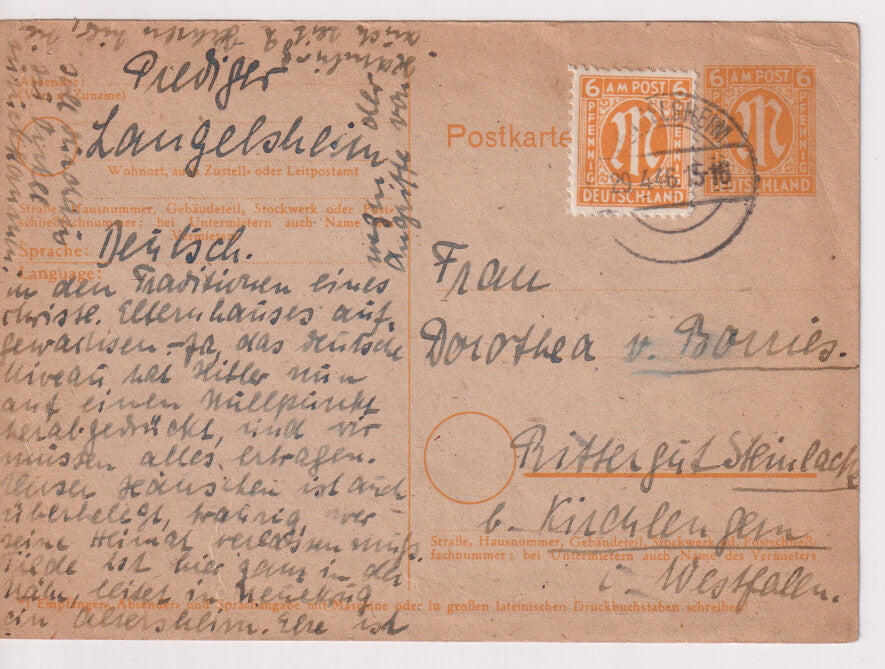 Absender:
Prediger
Langelsheim
Wohnort, auch Zustell- oder Leitpostamt
Straße, Hausnummer, Gebäudeteil, Stockwerk oder Post-
schließfachnummer; bei Untermietern auch Name
Vermieters
Sprache: Deutsch.
Language:
in den Traditionen eines
christl. Elternhauses auf-
gewachsen. Ja, das deutsche
Niveau hat Hitler nun
auf einen Nullpunkt
herabgedrückt, und wir
müssen alles ertragen.
Unser Häuschen ist auch
überbelegt, traurig, wer
seine Heimat verlassen muß.
Tilde ist hier ganz in der
Nähe, leitet in
ein Altersheim. Else ist
auch seit
wegen der
Angriffe von
Postkarte
6 AM POST 6
PFENNIG
M
DEUTSCHLAND
6 AM POST 6
PFENNIG
M
DEUTSCHLAND
ELSHEIM
29.4.46. 15-16
Frau
Dorothea v. Borries.
Rittergut Steinlacke
b. Kirchlengern
i. Westfalen.
Straße, Hausnummer, Gebäudeteil, Stockwerk od. Postschließ-
fachnummer; bei Untermietern auch Name des Vermieters
Empfänger-, Absender- und Sprachangabe mit Maschine oder in großen lateinischen Druckbuchstaben schreiben!